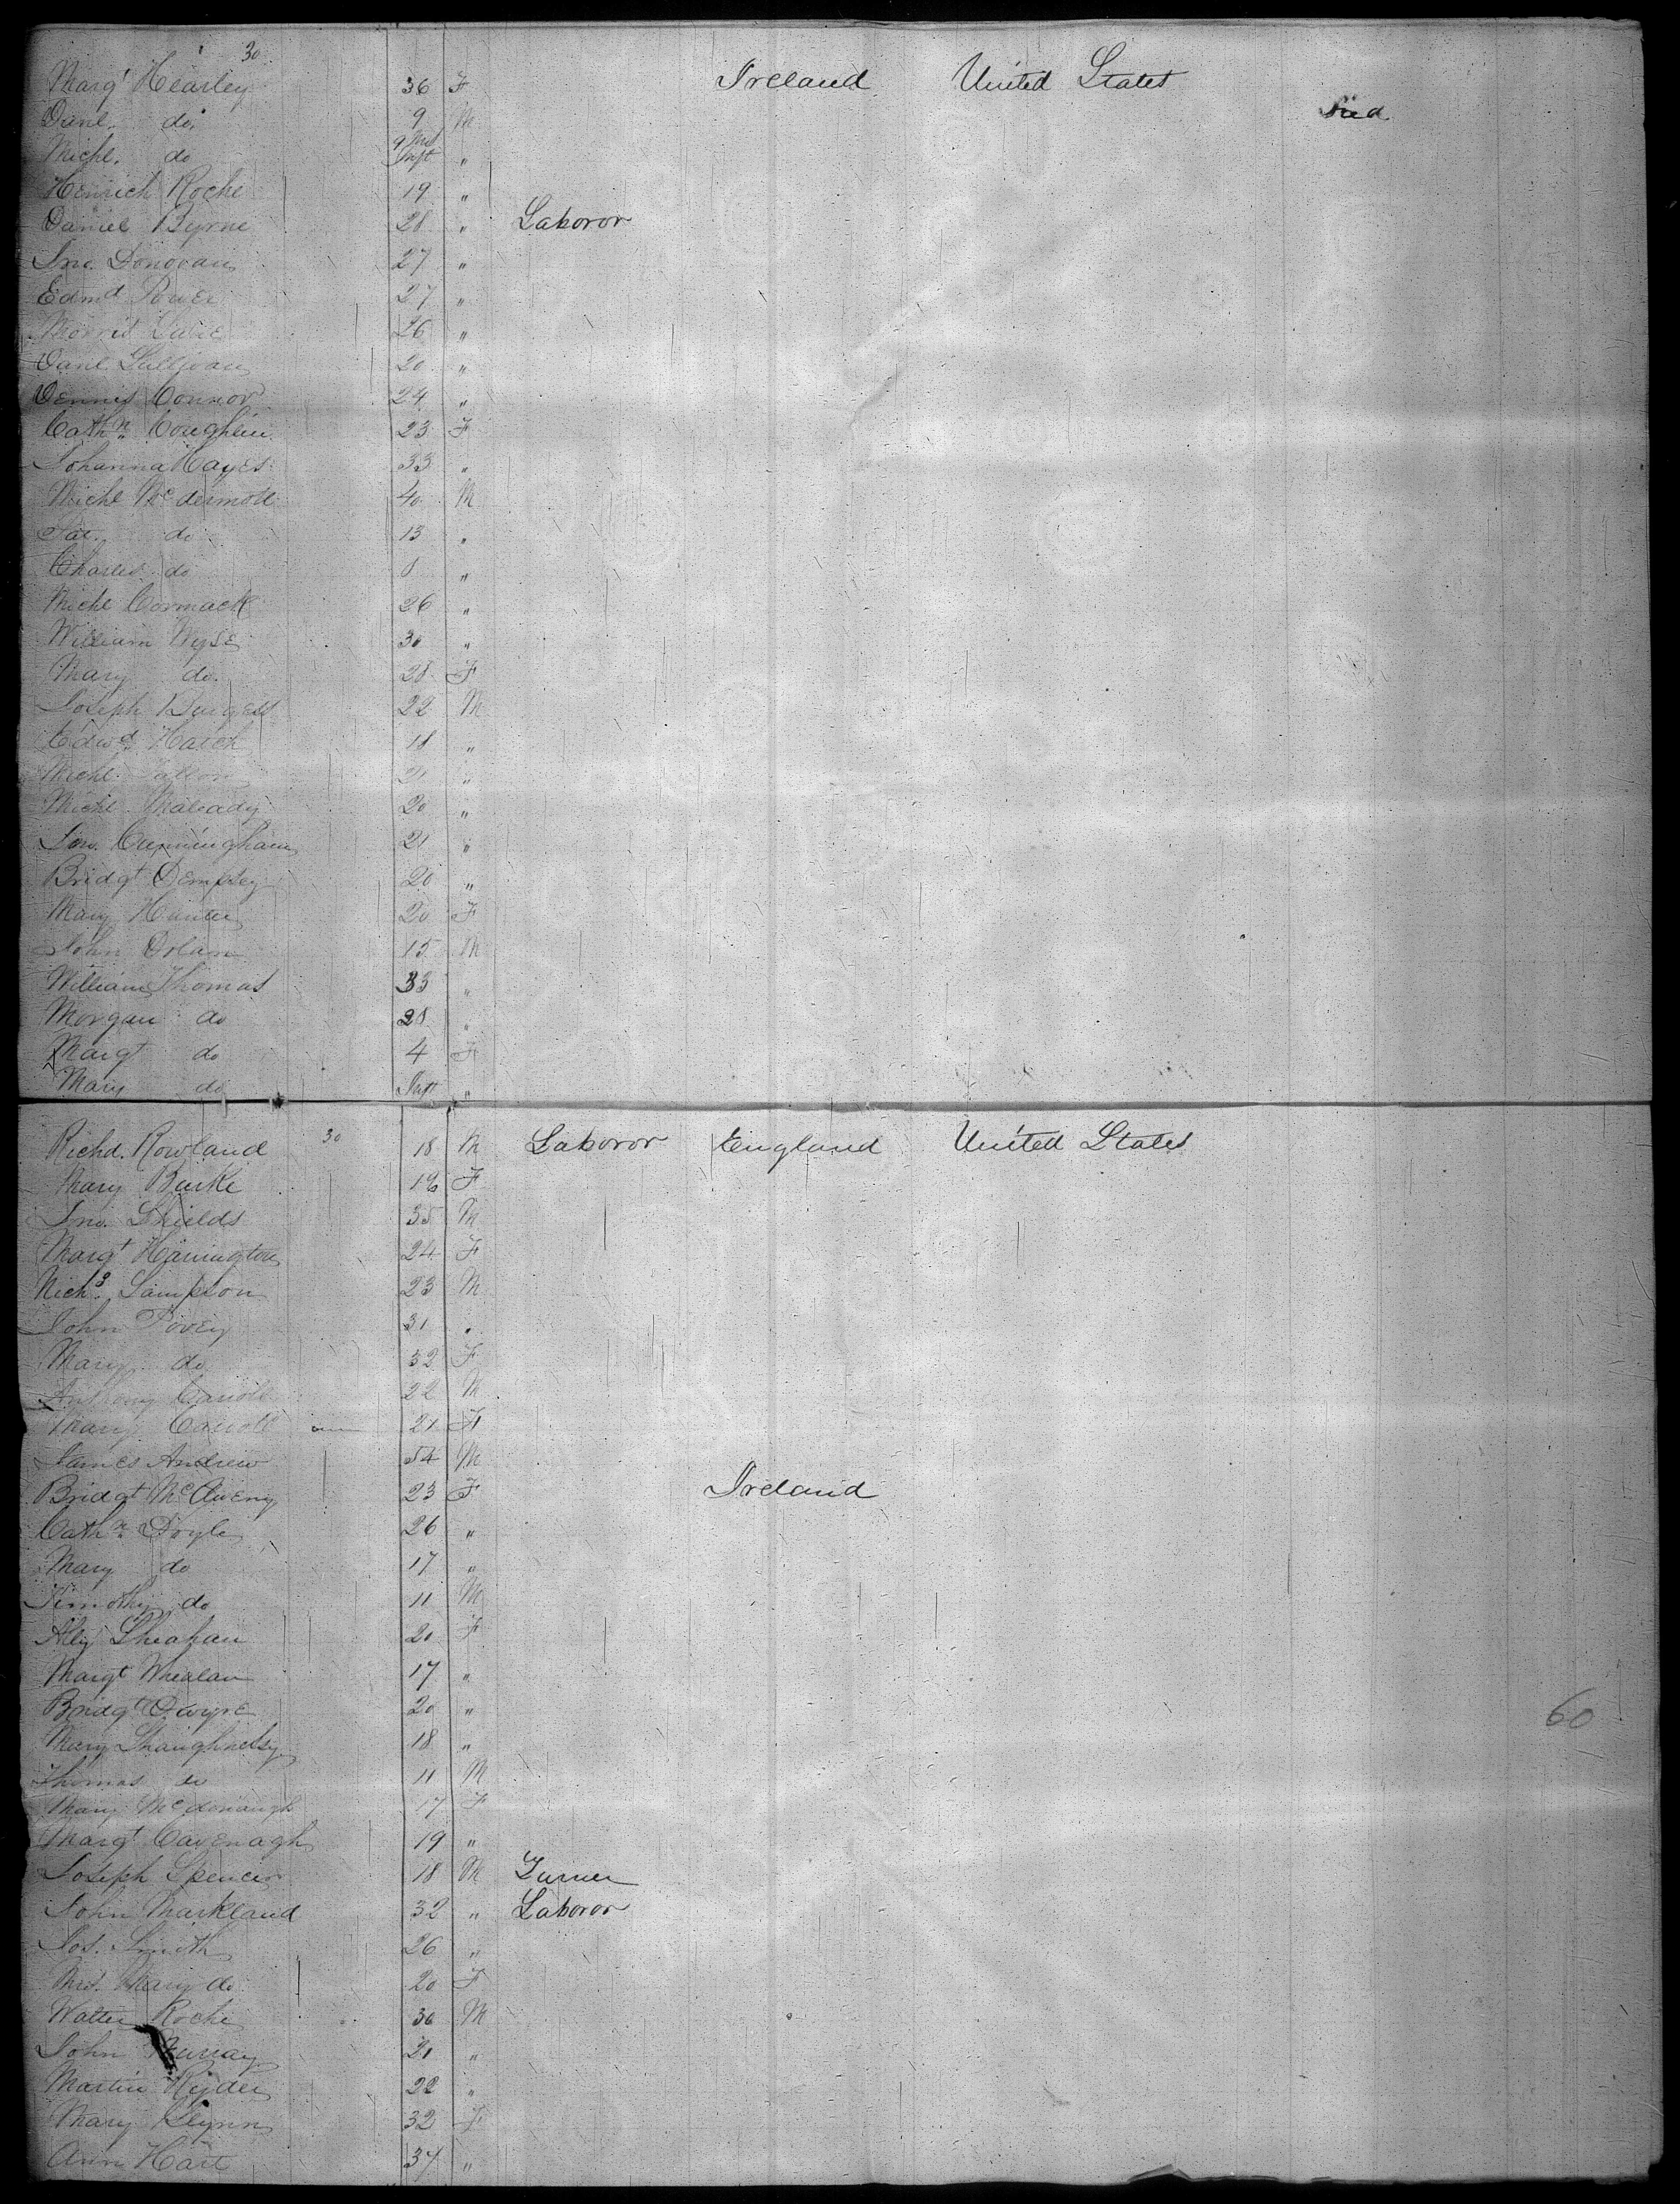 30
Margt Hearley 36 F Ireland United States
Danl. do. 9 M Died
Michl. do 9 Mos Inft "
Henrich Roche 19 "
Daniel Byrne 28 " Laboror
Jno. Donovan 27 "
Edmd Power 27 "
Morris 26 "
Danl Sullivan 20 "
Dennis Connor 24 "
Cathn Coughlin 23 F
Johanna Hayes 33 "
Michl McDermott 40 M
Pat. do 13 "
Charles do 8 "
Michl Cormack 26 "
William Wyse 30 "
Mary do. 28 F
Joseph Burgess 22 M
Edwd Hatch 18 "
Michl. 21 "
Michl Maleady 20 "
Jno. Cunningham 21 "
Bridgt Dempsey 20 "
Mary Hunter 20 F
John Dolan 15 M
William Thomas 33 "
Morgan do 28 "
Margt do 4 F
Mary do Inft "
30
Richd. Rowland 18 M Laboror England United States
Mary Burke 19 F
Jno. Shields 35 M
Margt Harrington 24 F
Nichs. Sampson 23 M
John Povey 31 "
Mary do 32 F
Anthony Carroll 22 M
Mary Carroll 21 F
James Andrew 54 M
Bridgt 23 F Ireland
Cathn Doyle 26 "
Mary do 17 "
Timothy do 11 M
Ally Sheahan 20 F
Margt Whealan 17 "
Bridgt 20 " 60
Mary Shaughnesy 18 "
Thomas do 11 M
Mary McDonaugh 17 F
Margt Cavenagh 19 "
Joseph Spencer 18 M Turner
John Markland 32 " Laboror
Jos. Smith 26 "
Mrs. Mary do 20 F
Walter Roche 30 M
John Murray 21 "
Martin Ryder 22 "
Mary Glynn 32 F
Ann Hart 37 "